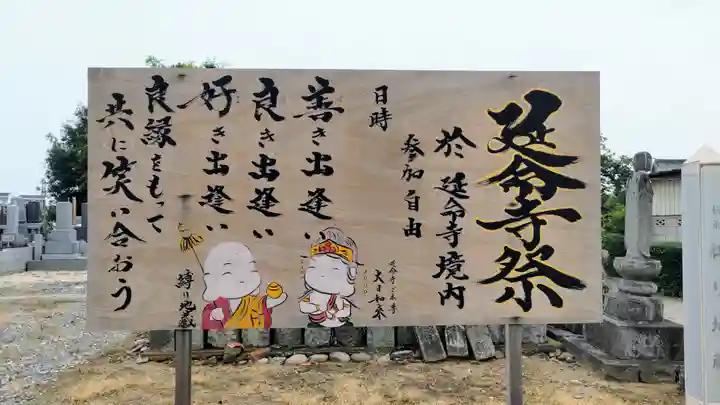 延命寺祭
於 延命寺境内
参加自由
日時
善き出逢い
良き出逢い
好き出逢い
良縁をもって
共に笑い合おう
延命寺ご本尊
大日如来
縛り地蔵